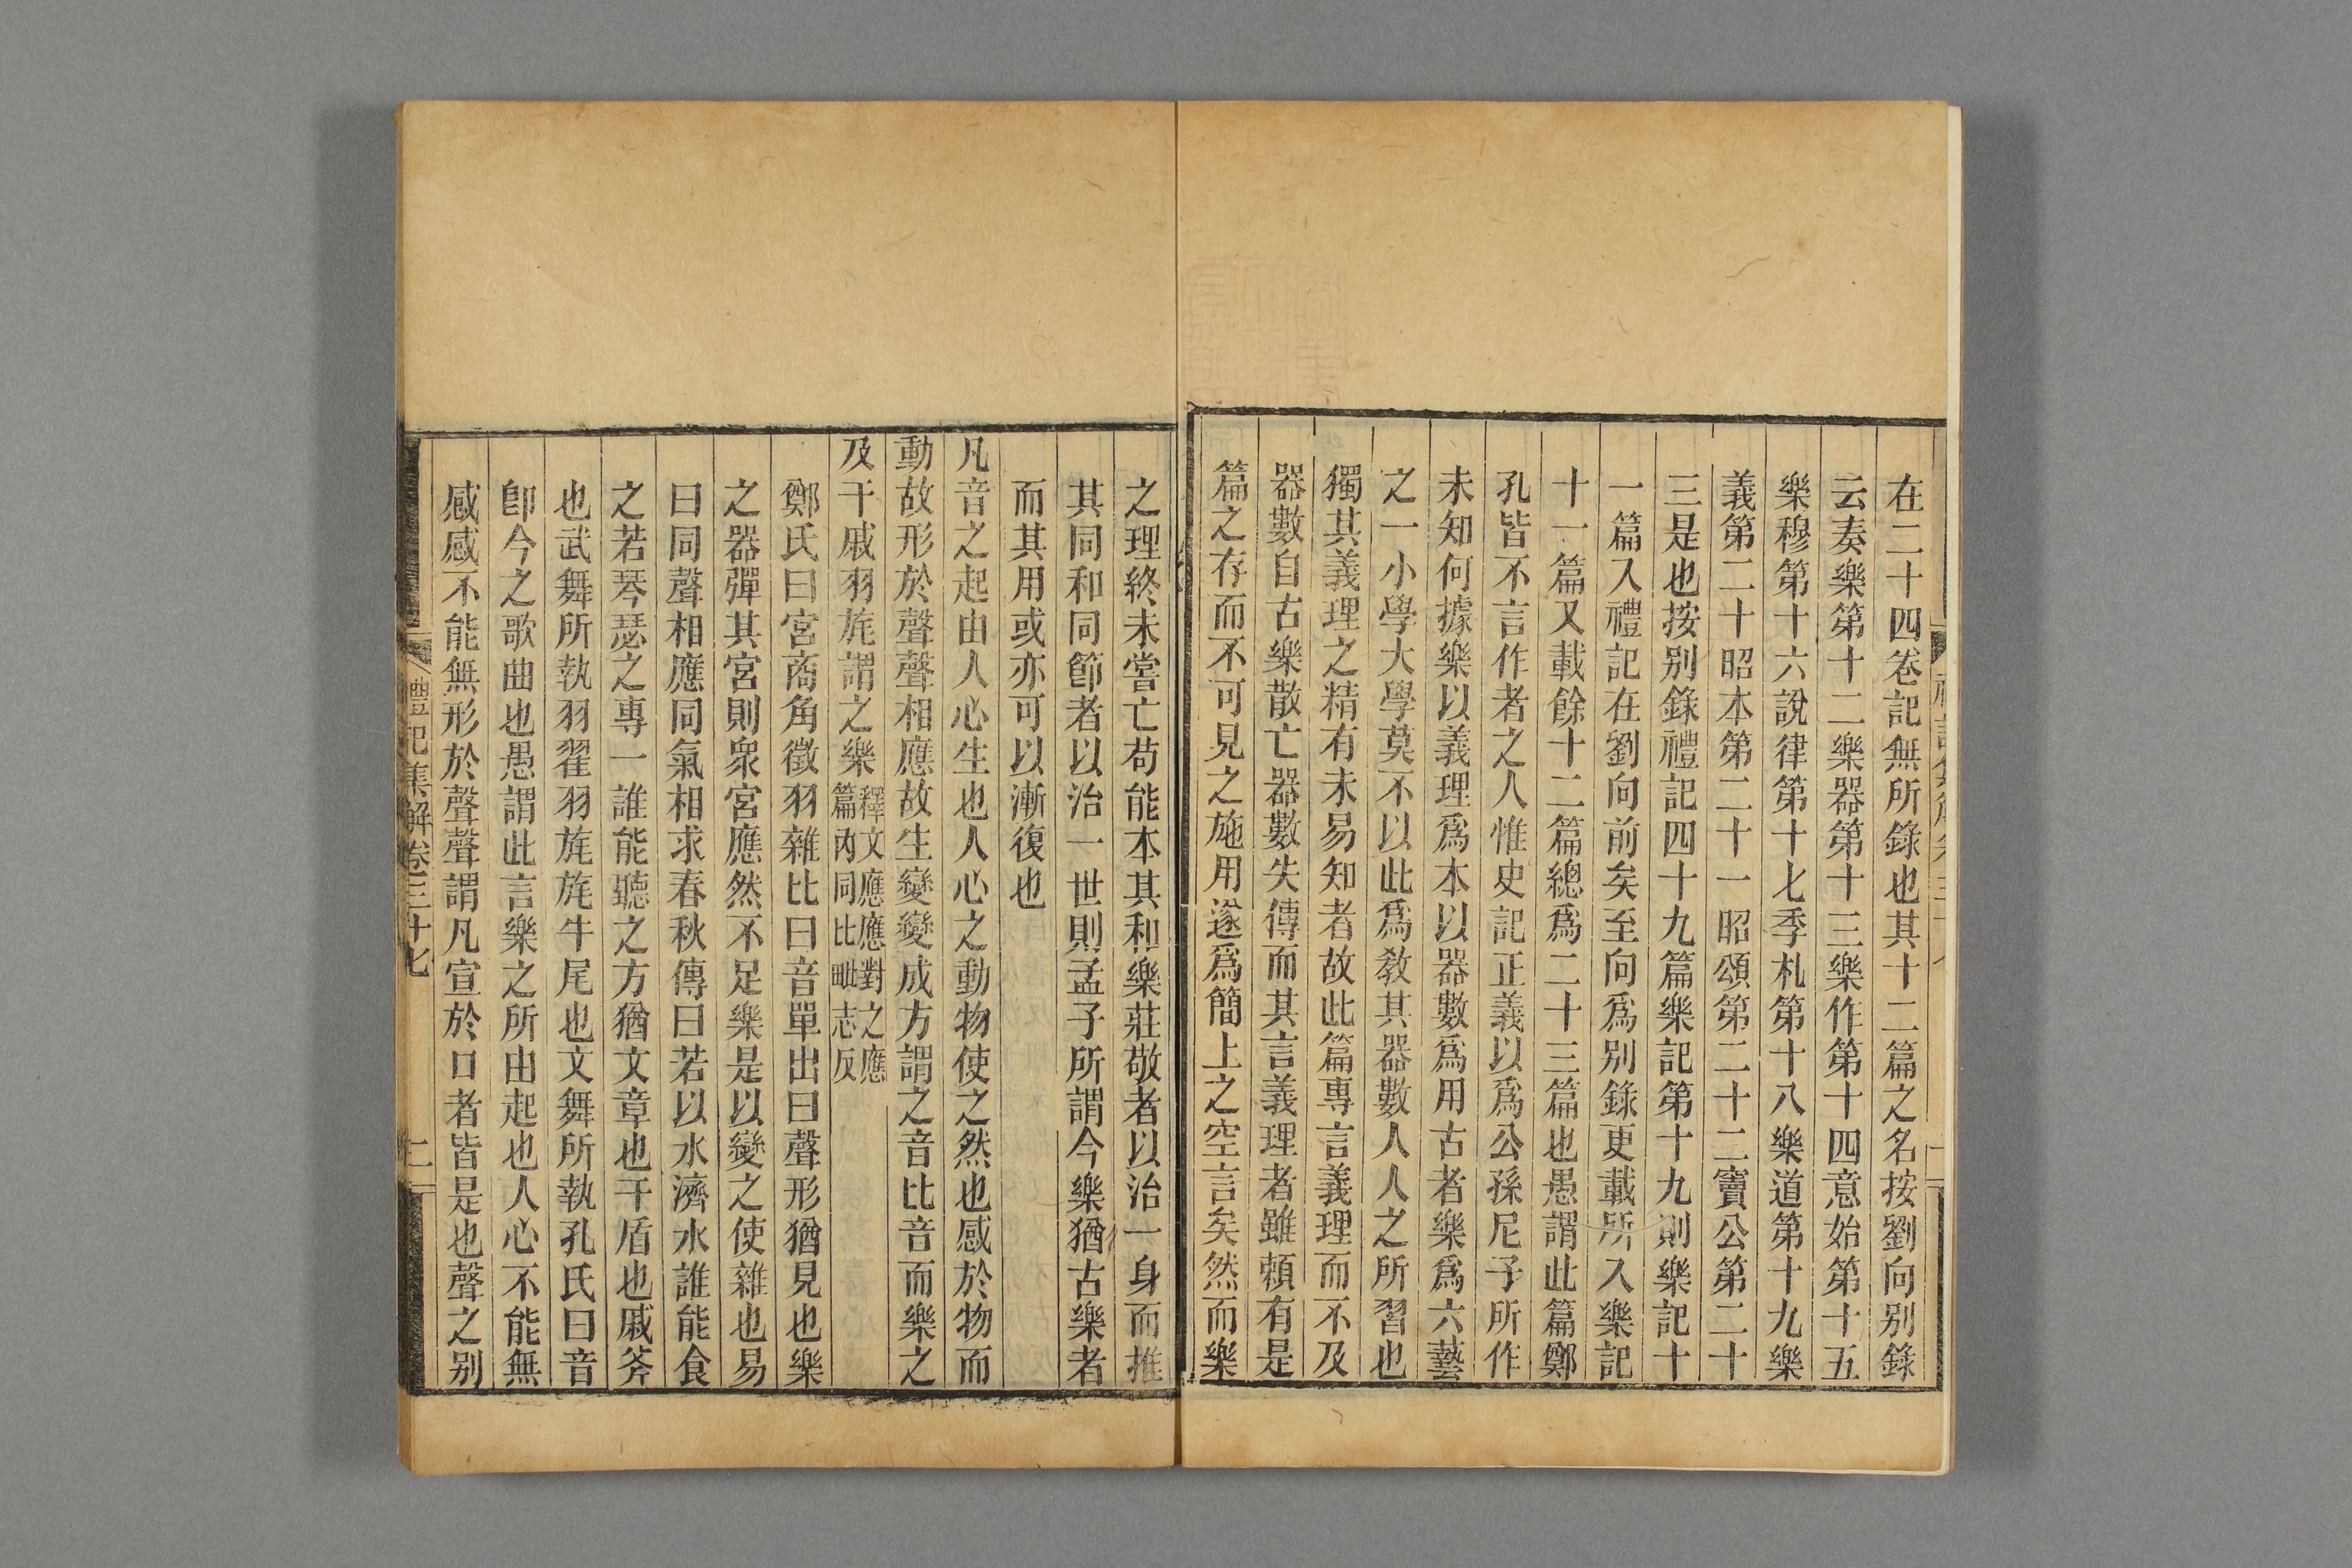 在二十四卷記無所錄也其十二篇之名按劉向别錄
云奏樂第十二樂器第十三樂作第十四意始第十五
樂穆第十六說律第十七季札第十八樂道第十九樂
義第二十昭本第二十一昭頌第二十二竇公第二十
三是也按别錄禮記四十九篇樂記第十九則樂記十
一篇入禮記在劉向前矣至向爲别錄更載所入樂記
十一篇又載餘十二篇總爲二十三篇也愚謂此篇鄭
孔皆不言作者之人惟史記正義以爲公孫尼子所作
未知何據樂以義理爲本以器數爲用古者樂爲六藝
之一小學大學莫不以此爲敎其器數人人之所習也
獨其義理之精有未易知者故此篇專言義理而不及
器數自古樂散亡器數失傳而其言義理者雖賴有是
篇之存而不可見之施用遂爲簡上之空言矣然而樂
之理終未嘗亡苟能本其和樂莊敬者以治一身而推
其同和同節者以治一世則孟子所謂今樂猶古樂者
而其用或亦可以漸復也
凡音之起由人心生也人心之動物使之然也感於物而
動故形於聲聲相應故生變變成方謂之音比音而樂之
及干戚羽旄謂之樂
釋文應應對之應
篇內同比毗志反
鄭氏曰宮商角徵羽雜比曰音單出曰聲形猶見也樂
之器彈其宮則衆宮應然不足樂是以變之使雜也易
曰同聲相應同氣相求春秋傳曰若以水濟水誰能食
之若琴瑟之專一誰能聽之方猶文章也干盾也戚斧
也武舞所執羽翟羽旄旄牛尾也文舞所執孔氏曰音
卽今之歌曲也愚謂此言樂之所由起也人心不能無
感感不能無形於聲聲謂凡宣於口者皆是也聲之别
禮記集解卷三十七
二